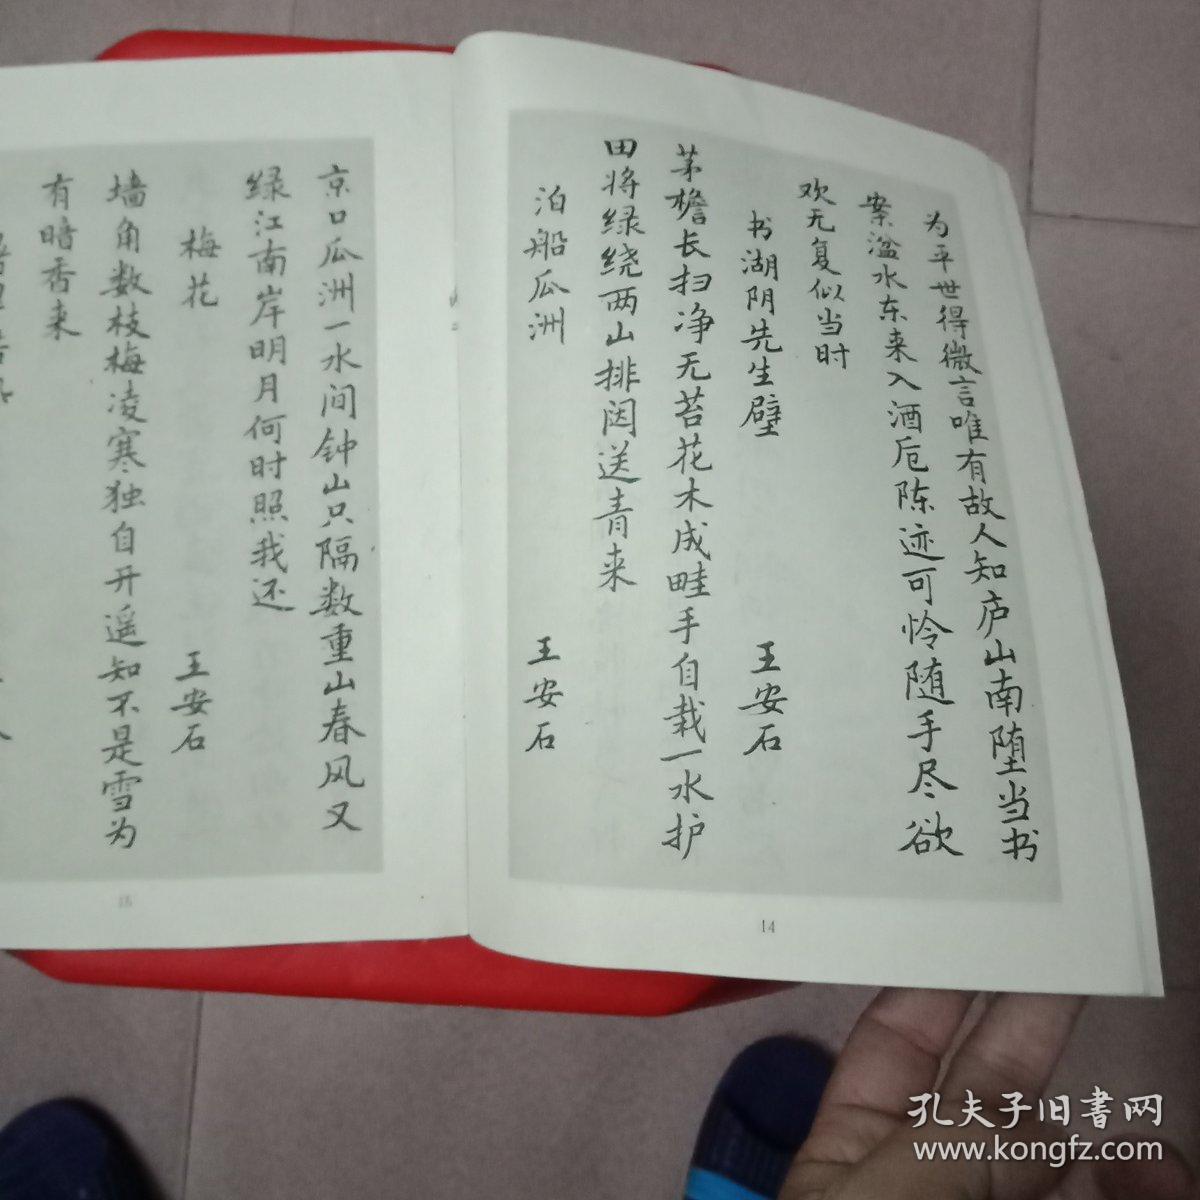 为平世得微言唯有故人知庐山南堕当书
案湓水东来入酒卮陈迹可怜随手尽欲
欢无复似当时
书湖阴先生壁 王安石
茅檐长扫净无苔花木成畦手自栽一水护
田将绿绕两山排闼送青来
泊船瓜洲 王安石
14
京口瓜洲一水间钟山只隔数重山春风又
绿江南岸明月何时照我还
梅花 王安石
墙角数枝梅凌寒独自开遥知不是雪为
有暗香来
15
孔夫子旧書网
www.kongfz.com